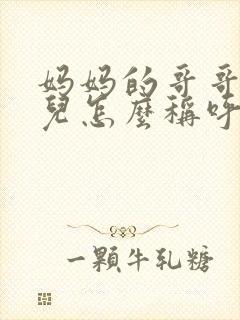 妈妈的哥哥
兒怎麼稱呼
一顆牛軋糖